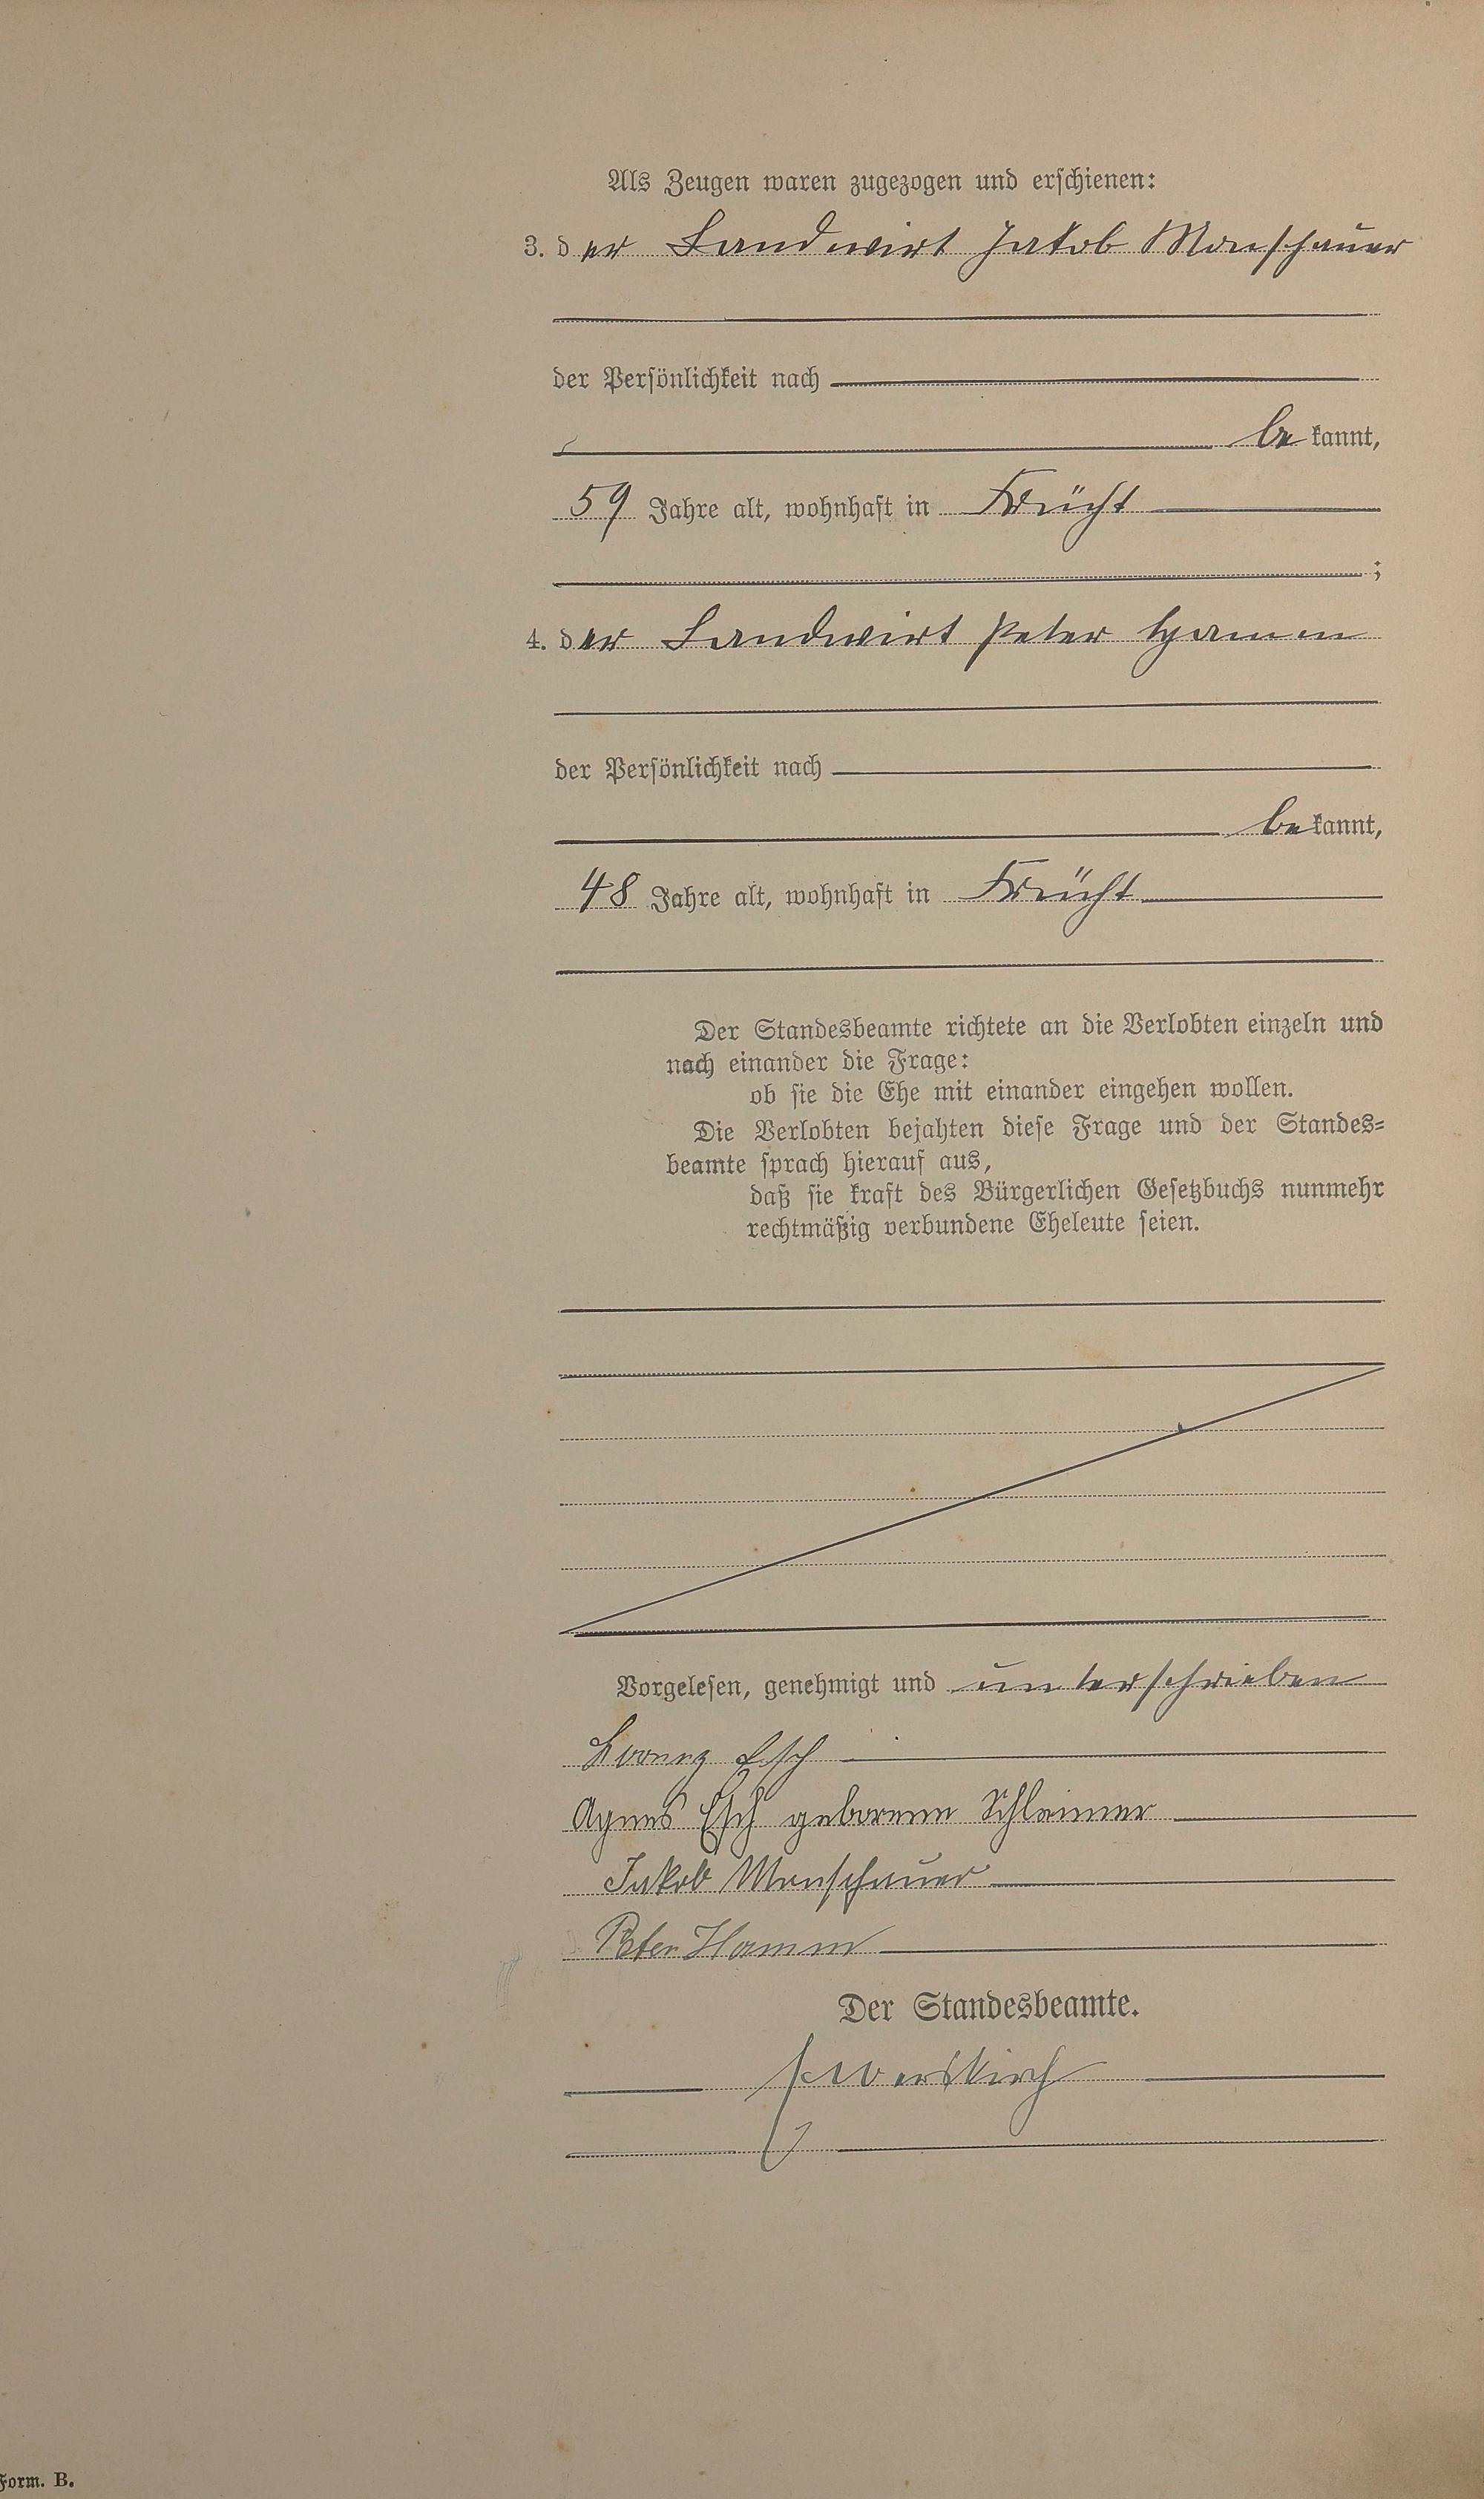 Als Zeugen waren zugezogen und erschienen:
3. der Landwirt Jakob Monschauer
der Persönlichkeit nach
bekannt,
59 Jahre alt, wohnhaft in Frücht
;
4. der Landwirt Peter Hamm
der Persönlichkeit nach
bekannt,
48 Jahre alt, wohnhaft in Frücht
Der Standesbeamte richtete an die Verlobten einzeln und
nach einander die Frage:
ob sie die Ehe mit einander eingehen wollen.
Die Verlobten bejahten diese Frage und der Standes-
beamte sprach hierauf aus,
daß sie kraft des Bürgerlichen Gesetzbuchs nunmehr
rechtmäßig verbundene Eheleute seien.
Vorgelesen, genehmigt und unterschrieben
Lorenz Esch
Agnes Esch geborene Schleimer
Jakob Monschauer
Peter Hamm
Der Standesbeamte.
Form. B.